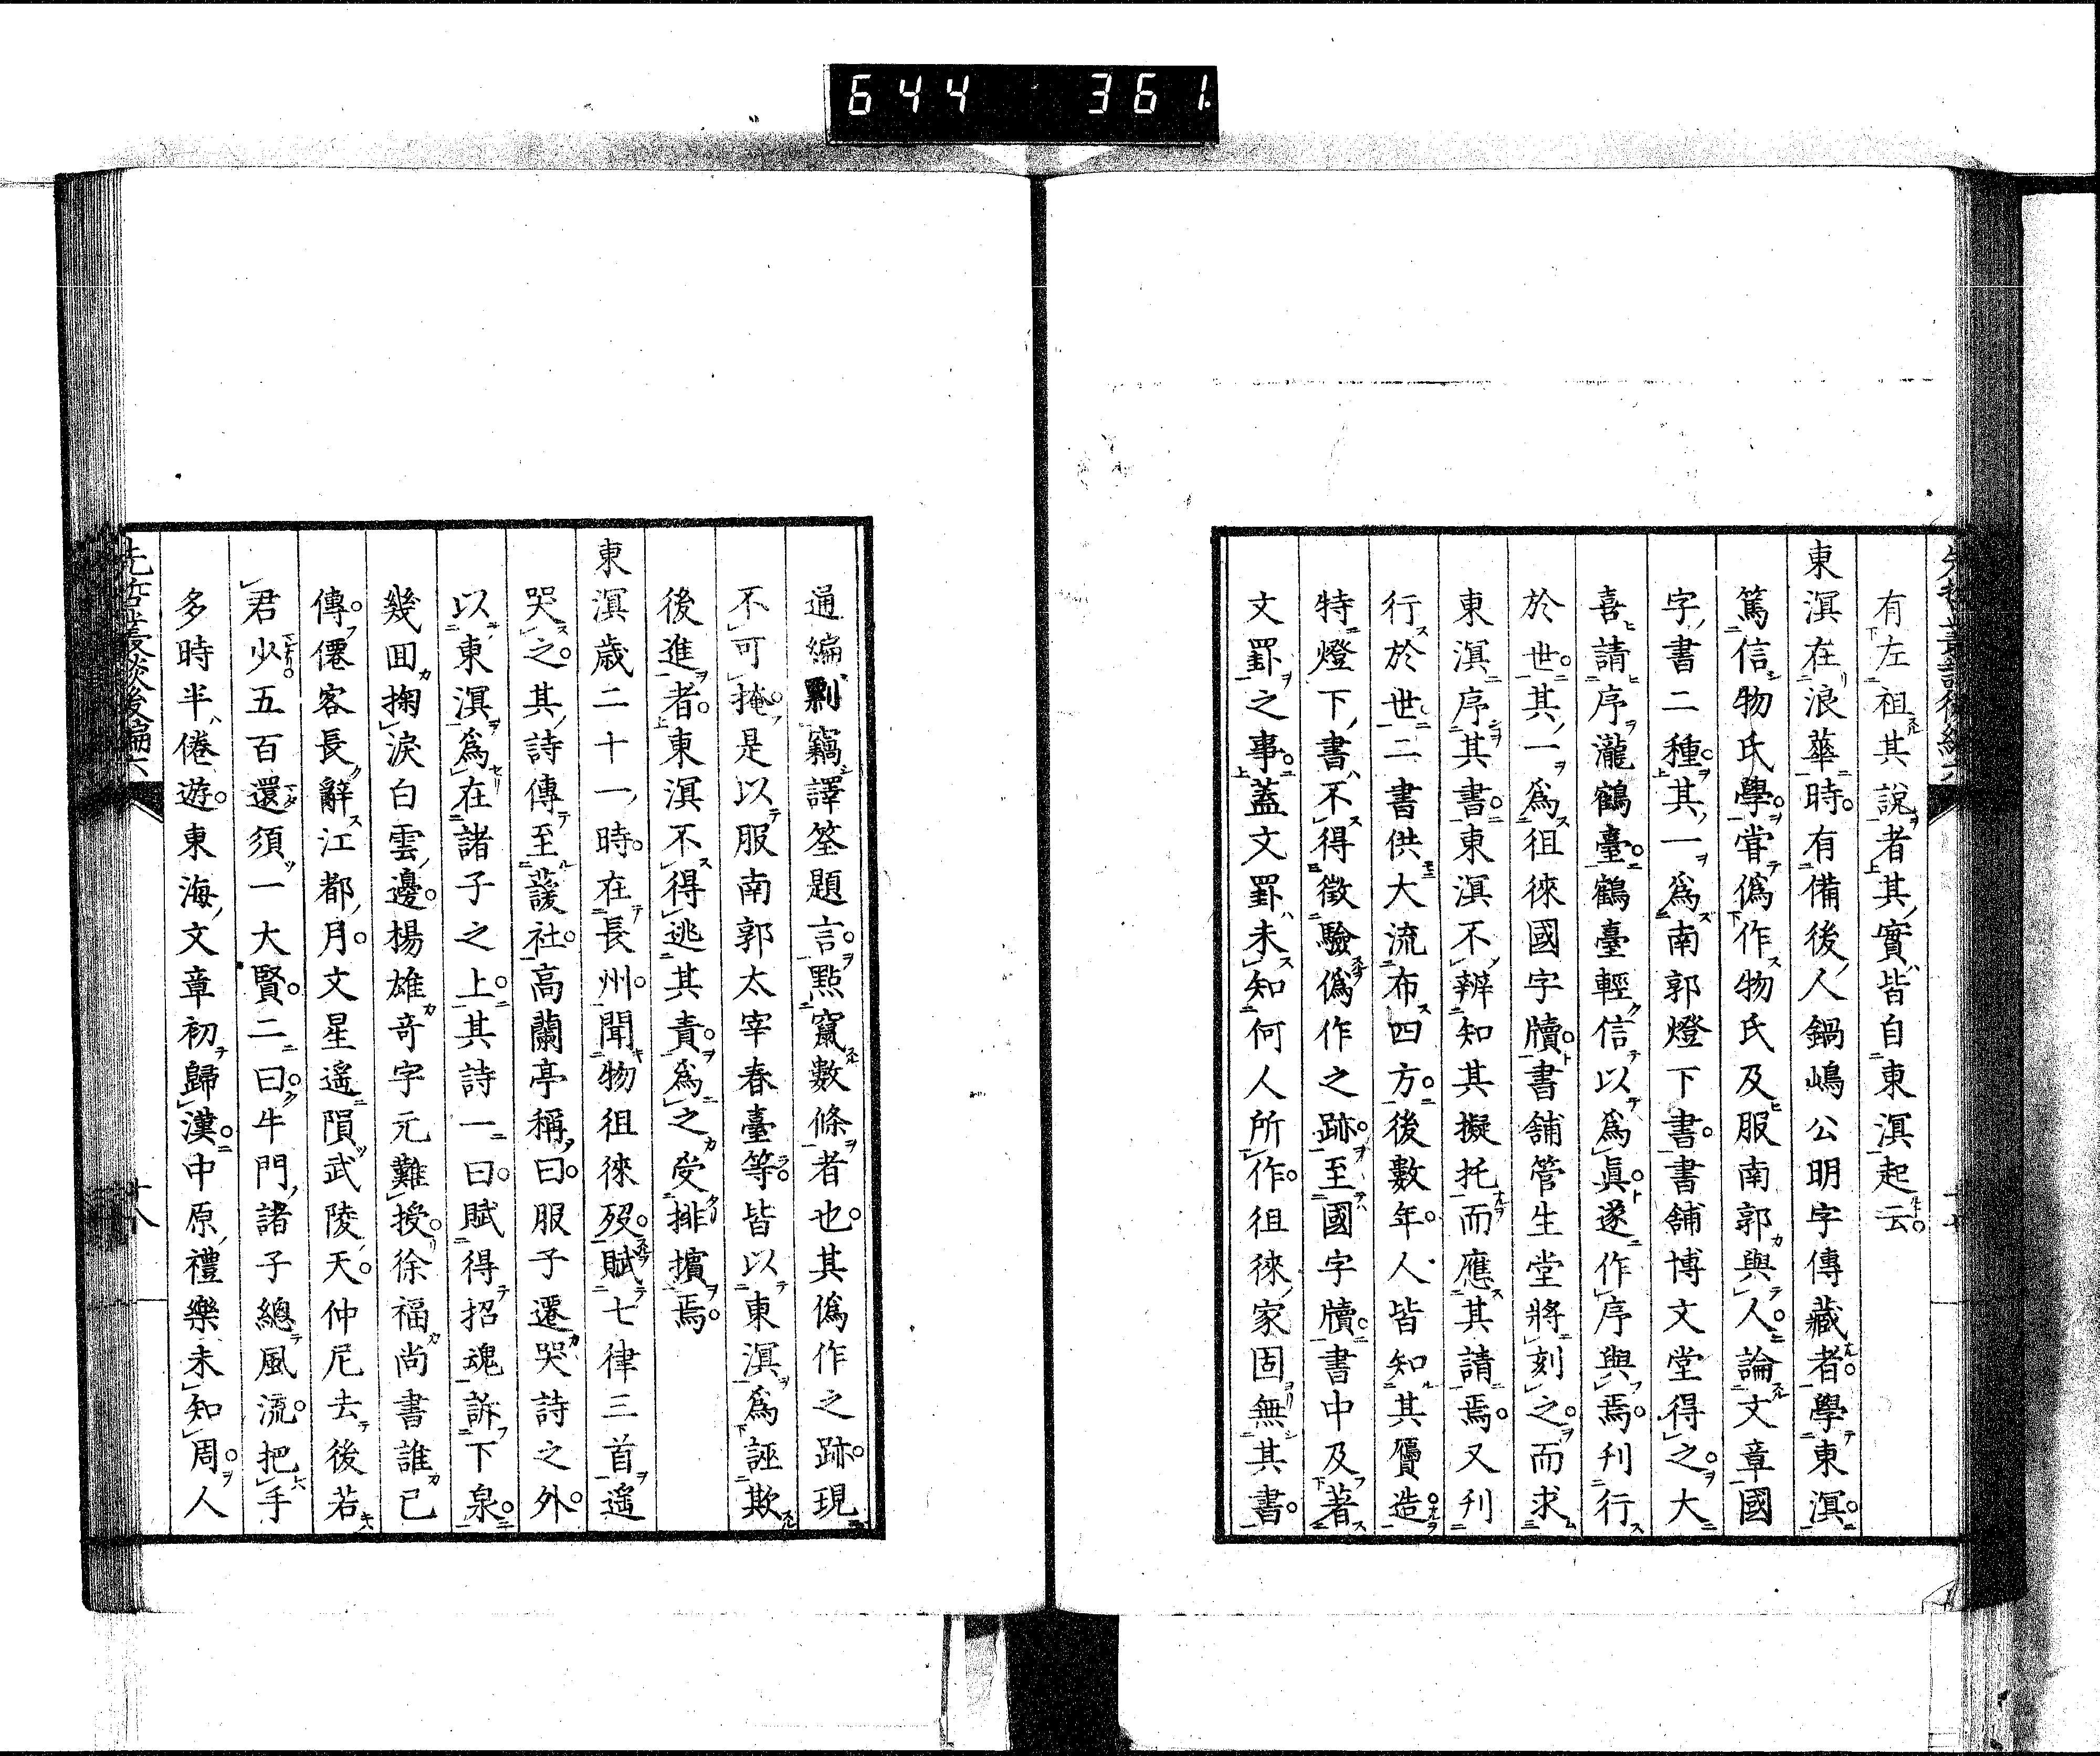 644 361
有左祖其說者其實皆自東溟起云
東溟在浪華時有備後人鍋嶋公明字傳藏者學東溟
篤信物氏學嘗僞作物氏及服南郭與人論文章國
字書二種其一爲南郭燈下書書舖博文堂得之大
喜請序瀧鶴臺鶴臺輕信以爲眞遂作序與焉刋行
於世其一爲徂徠國字牘書舖管生堂將刻之而求
東溟序其書東溟不辨知其擬托而應其請焉又刋
行於世二書供大流布四方後數年人皆知其贗造
特燈下書不得徵驗僞作之跡至國字牘書中及著
文罫之事蓋文罫未知何人所作徂徠家固無其書
通編剽竊譯筌題言點竄數條者也其僞作之跡現
不可掩是以服南郭太宰春臺等皆以東溟爲誣欺
後進者東溟不得逃其責爲之受排擯焉
東溟歲二十一時在長州聞物徂徠歿賦七律三首遙
哭之其詩傳至蘐社高蘭亭稱曰服子遷哭詩之外
以東溟爲在諸子之上其詩一曰賦得招魂訴下泉
幾回掬淚白雲邊楊雄奇字元難授徐福尚書誰已
傳僊客長辭江都月文星遙隕武陵天仲尼去後若
君少五百還須一大賢二曰牛門諸子總風流把手
多時半倦遊東海文章初歸漢中原禮樂未知周人
先哲叢談後編六
十八